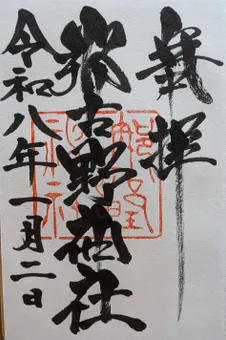 奉拝
那古野神社
令和八年一月二日